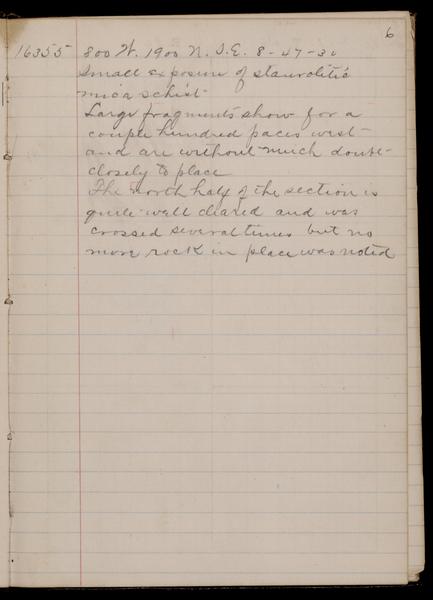 6
16355 800 W. 1900 N. S.E. 8-47-30
Small exposure of staurolitic
mica schist
Large fragments show for a
couple hundred paces west
and are without much doubt
closely to place
The north half of the section is
quite well cleared and was
crossed several times but no
more rock in place was noted